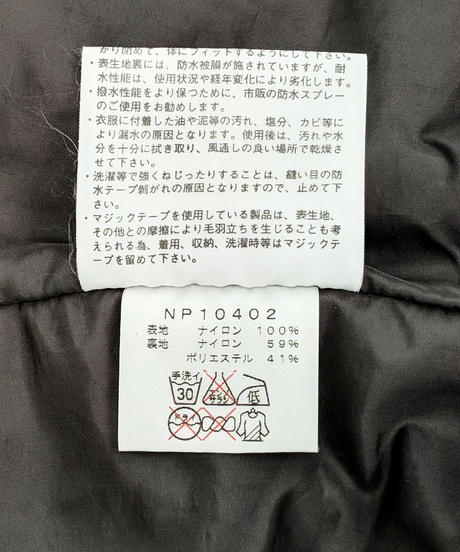 がり閉めて、体にフィットするようにして下さい。
・表生地裏には、防水被膜が施されていますが、耐
水性能は、使用状況や経年変化により劣化します。
・撥水性能をより保つために、市販の防水スプレー
のご使用をお勧めします。
・衣服に付着した油や泥等の汚れ、塩分、カビ等に
より漏水の原因となります。使用後は、汚れや水
分を十分に拭き取り、風通しの良い場所で乾燥さ
せて下さい。
・洗濯等で強くねじったりすることは、縫い目の防
水テープ剥がれの原因となりますので、止めて下
さい。
・マジックテープを使用している製品は、表生地、
その他との摩擦により毛羽立ちを生じることも考
えられる為、着用、収納、洗濯時等はマジックテ
ープを留めて下さい。
NP10402
表地 ナイロン 100%
裏地 ナイロン 59%
ポリエステル 41%
手洗イ 30 サラシ 低
ドライ